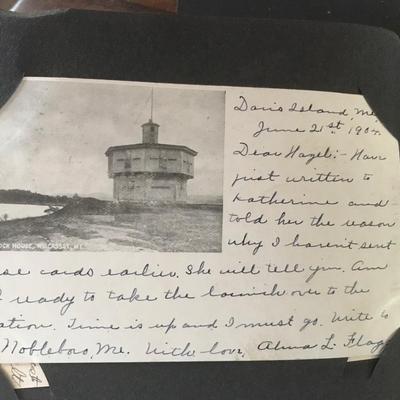 Davis Island, Me,
June 21st 1904.
Dear Hazel:- Have
just written to
Katherine and
told her the reason
why I haven't sent
OCK HOUSE, WISCASSET, ME.
se cards earlier. She will tell you. Am
ready to take the launch over to the
ation. Time is up and I must go. Write to
Nobleboro, Me. With love, Alma L. Flag